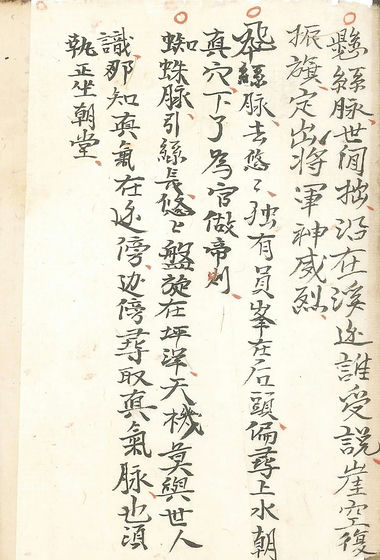 懸絲脉世间拙没在溪边誰受説崖空復
振旗定出将軍神威烈
飛絲脉去悠〻独有員峯在后頭偏尋上水朝
真穴下了為官做帝則
蜘蛛脉引絲長悠〻盤旋在坪洋天機莫與世人
識那知真氣在边傍边傍尋取真氣脉也須
執正坐朝堂